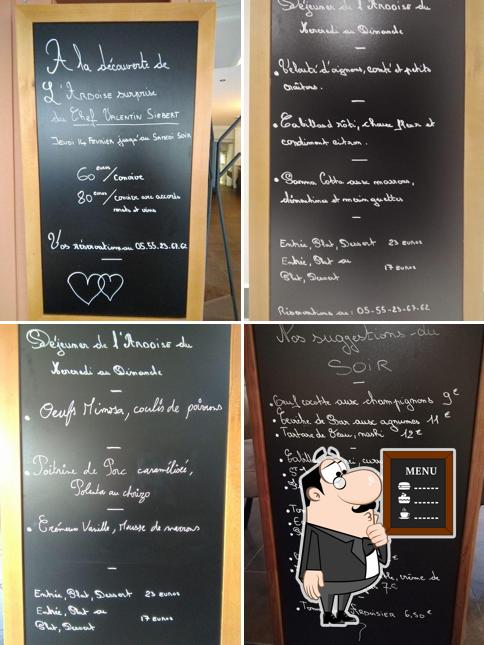 A la découverte de
L'Ardoise surprise
du Chef Valentin Sirbert
Jeudi 14 Février jusqu'au Samedi Soir
60 euros / Convive
80 euros / convive avec accords
mets et vins
Vos réservations au 05.55.23.67.62
Déjeuner de l'Ardoise du
Mercredi au Dimanche
Velouté d'oignons, comté et petits
croûtons.
Cabillaud rôti, choux fleur et
condiment citron.
Panna Cotta aux marrons,
clémentines et mainguettes
Entrée, Plat, Dessert 23 euros
Entrée, Plat ou
17 euros
Plat, Dessert
Réservations au: 05-55-23-67-62
Déjeuner de l'Ardoise du
Mercredi au Dimanche
Oeufs Mimosa, coulis de poivrons
Poitrine de Porc caramélisée,
Polenta au chorizo
Crémeux Vanille, Mousse de marrons
Entrée, Plat, Dessert 23 euros
Entrée, Plat ou
17 euros
Plat, Dessert
Nos suggestions du
SOIR
Oeuf cocotte aux champignons 9€
Ceviche de Bar aux agrumes 11€
Tartare de Veau, nashi 12€
MENU
crème de
7€
6,50€